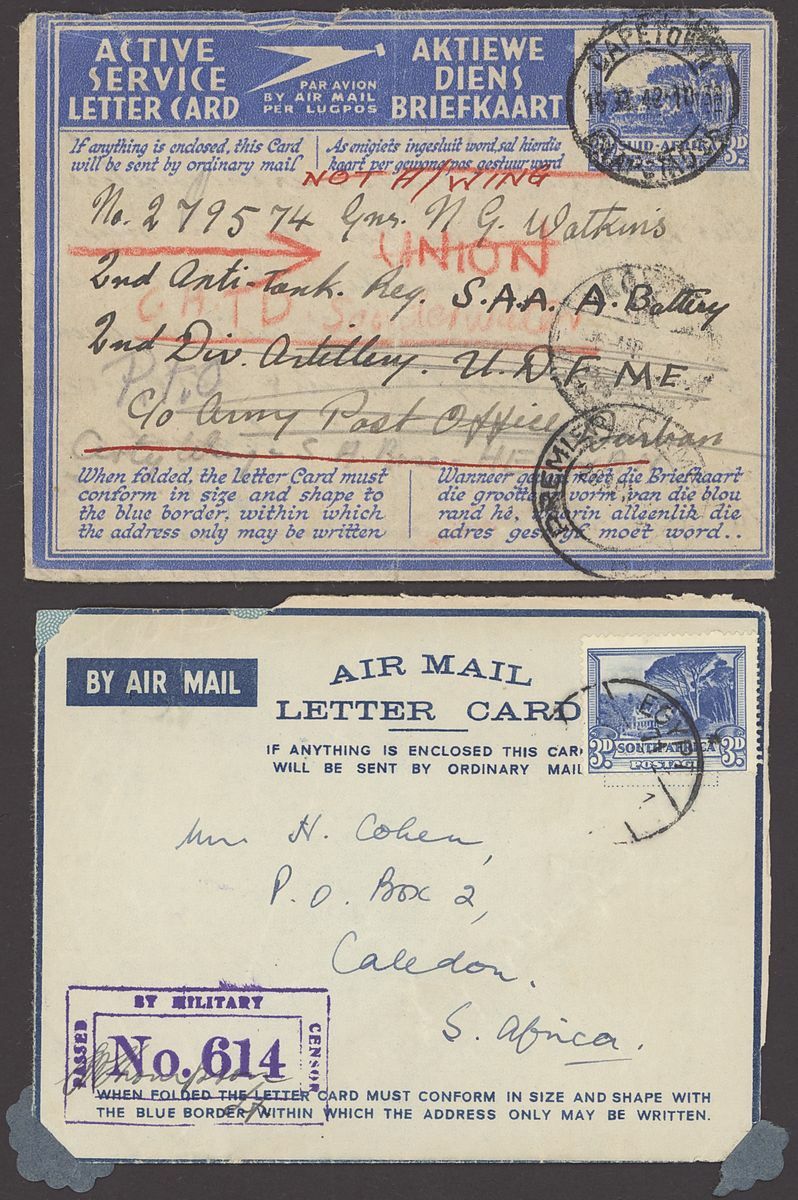 ACTIVE
SERVICE
LETTER CARD
PAR AVION
BY AIR MAIL
PER LUGPOS
AKTIEWE
DIENS
BRIEFKAART
CAPETOWN
SUID-AFRIKA 3D.
If anything is enclosed, this Card
will be sent by ordinary mail
As enigiets ingesluit word, sal hierdie
kaart per gewone pos gestuur word
NOT H/WING
No. 279574 Gnr. N G. Watkins
UNION
2nd Anti-Tank. Reg. S.A.A. A. Battery
2nd Div. Artillery. U.D.F M.E
c/o Army Post Office, Durban
When folded, the letter Card must
conform in size and shape to
the blue border, within which
the address only may be written
Wanneer meet die Briefkaart
die grootte vorm van die blou
rand hê, alleenlik die
adres moet word..
BY AIR MAIL
AIR MAIL
LETTER CARD
IF ANYTHING IS ENCLOSED THIS CARD
WILL BE SENT BY ORDINARY MAIL
EGYPT
3D SOUTH AFRICA 3D
POSTAGE
H. Cohen,
P.O. Box 2,
Caledon.
S. Africa.
PASSED
BY MILITARY
CENSOR
No. 614
WHEN FOLDED THE LETTER CARD MUST CONFORM IN SIZE AND SHAPE WITH
THE BLUE BORDER, WITHIN WHICH THE ADDRESS ONLY MAY BE WRITTEN.